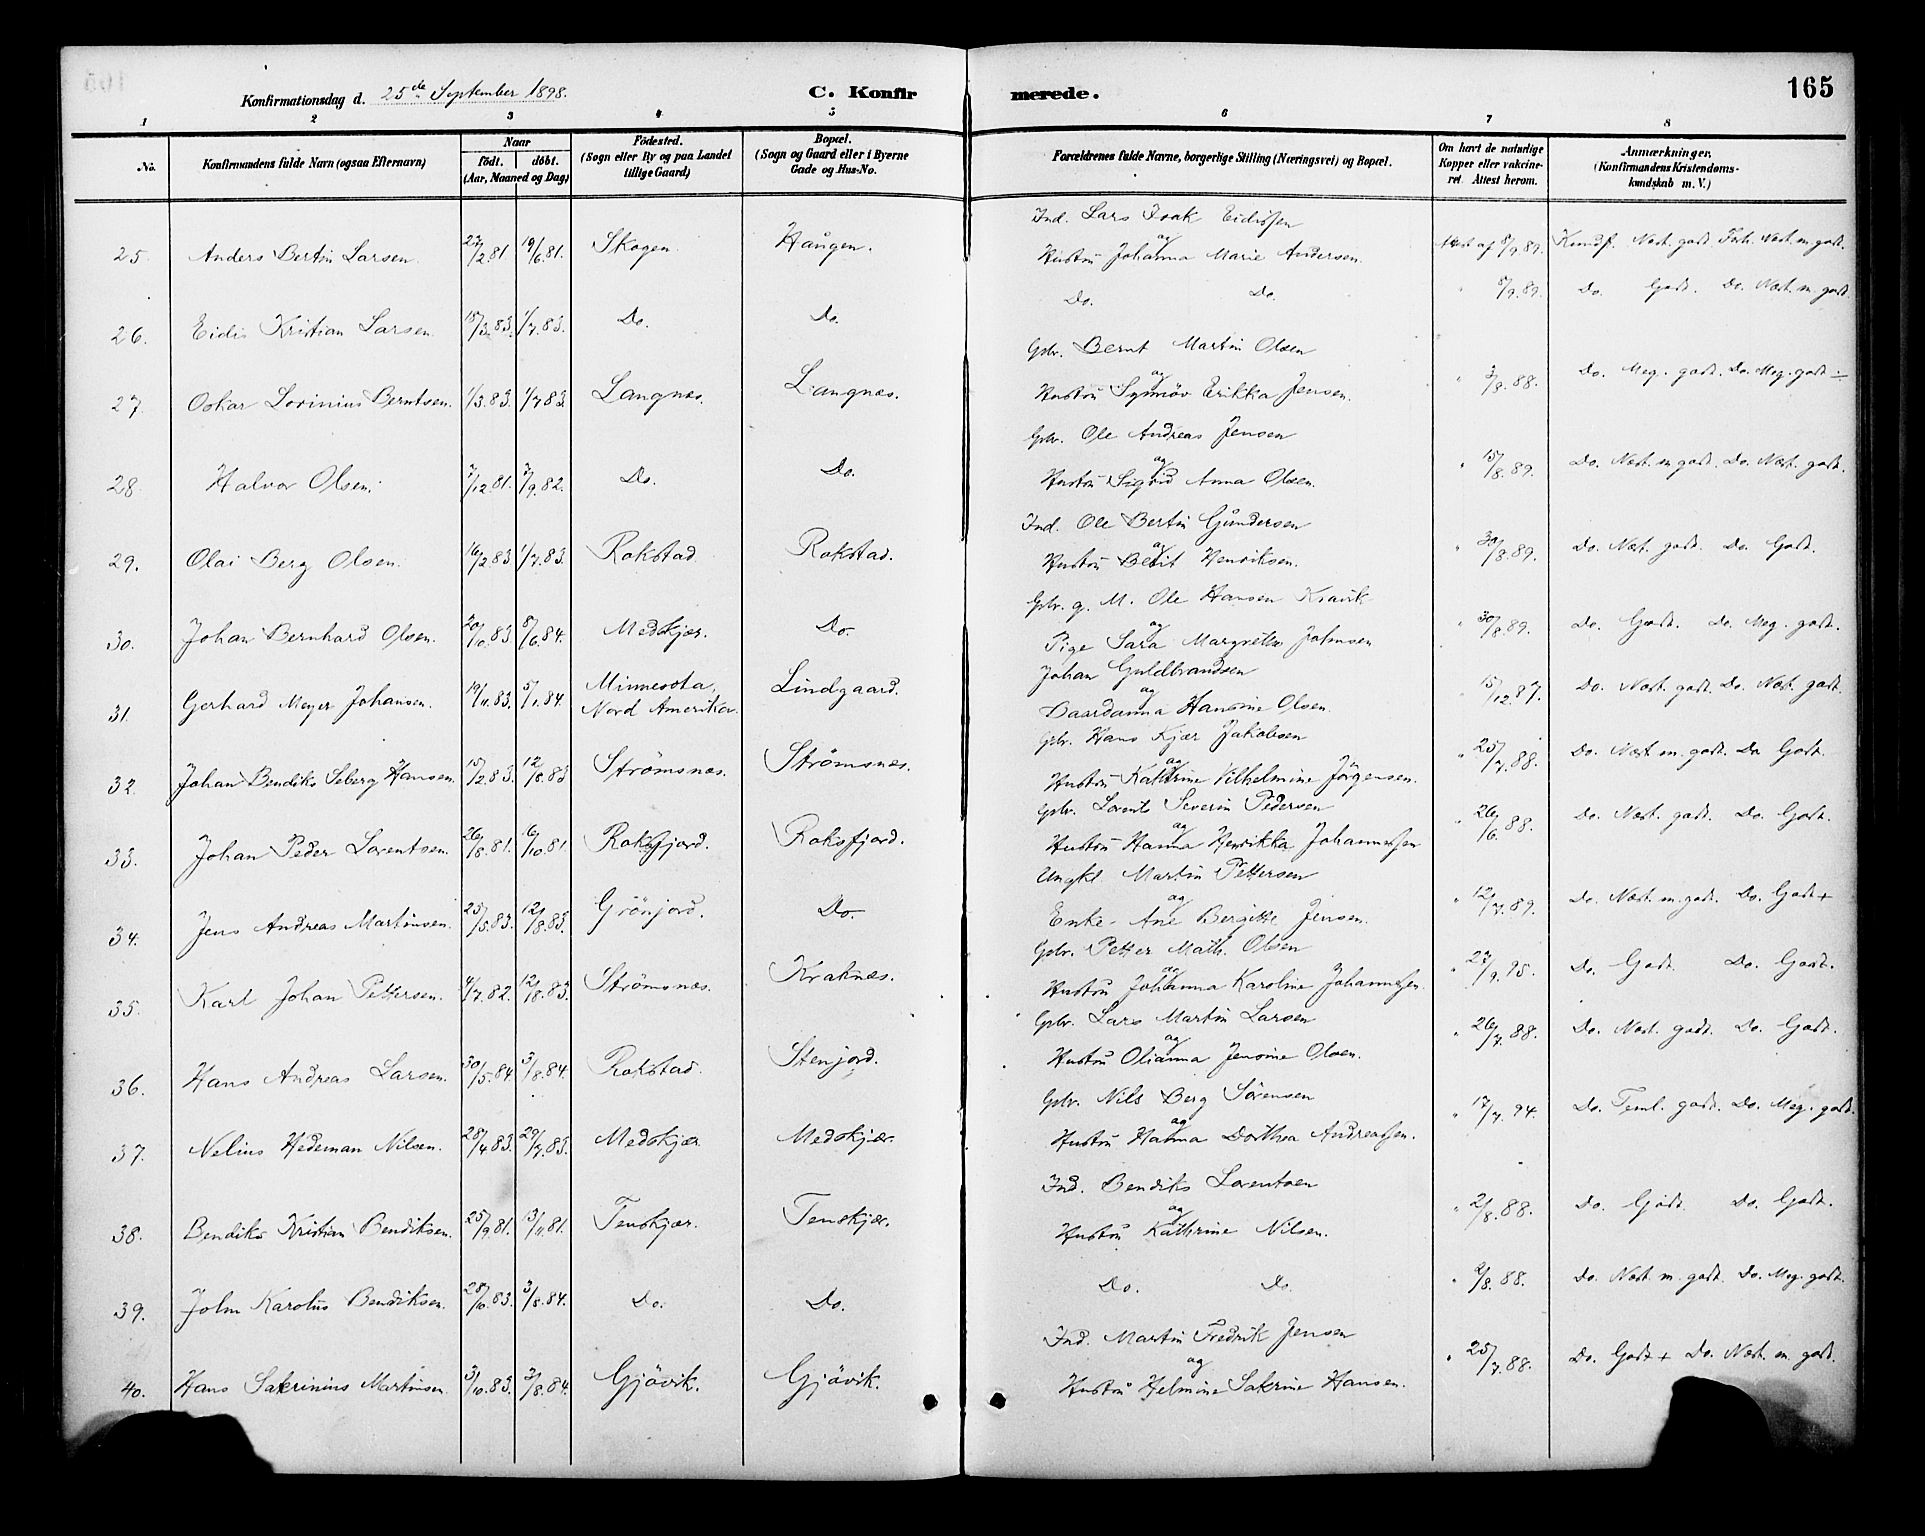 Konfirmationsdag d. 25de September 1898.
C. Konfir merede.
165
1 2 3 4 5 6 7 8
No.
Konfirmandens fulde Navn (ogsaa Efternavn)
Naar
födt. döbt.
(Aar, Maaned og Dag)
Födested.
(Sogn eller By og paa Landet
tillige Gaard)
Bopæl.
(Sogn og Gaard eller i Byerne
Gade og Hus-No.
Forældrenes fulde Navne, borgerlige Stilling (Næringsvei) og Bopæl.
Om havt de naturlige
Kopper eller vakcine-
ret. Attest herom.
Anmærkninger.
(Konfirmandens Kristendoms-
kundskab m. V.)
Ind. Lars Isak Eidissen
25. Anders Bertin Larsen. 27/2 81. 19/6 81. Skogen. Haugen. og Hustru Johanna Marie Andersen. Attest af 8/9 89. Kundsk. Næst. godt. Forh. Næst. m. godt.
26. Eidis Kristian Larsen. 18/3 83. 1/7 83. Do. Do. Do. Do. " 8/9 89. Do. Godt. Do. Næst. m. godt.
Gbr. Bernt Martin Olsen
27. Oskar Lorinius Berntsen. 1/3 83. 1/7 83. Langnæs. Langnæs. og Hustru Synnöv Erikka Jensen. " 3/8 88. Do. Meg. godt. Do. Meg. godt ÷
Gbr. Ole Andreas Jensen
28. Halvor Olsen. 7/12 81. 3/9 82. Do. Do. og Hustru Sigrid Anna Olsen. " 15/8 89. Do. Næst. m godt. Do. Næst. godt.
Ind. Ole Bertin Gundersen
29. Olai Berg Olsen. 16/2 83 1/7 83. Rokstad Rokstad. og Hustru Berit Henriksen. " 30/8 89. Do. Næst. godt. Do. Godt.
Gbr. g. M. Ole Hansen Kravik
30. Johan Bernhard Olsen. 20/10 83 8/6 84. Medskjær. Do. og Pige Sara Margrethe Johnsen " 30/8 89. Do. Godt. Do. Meg. godt.
Johan Guldbrandsen
31. Gerhard Meyer Johansen. 19/11 83. 5/1 84. Minnesota, Nord Amerika. Lindgaard. og Baardanna Hansine Olsen. " 15/12 87. Do. Næst. godt. Do. Næst. godt.
Gbr. Hans Kjær Jakobsen
32. Johan Bendiks Seberg Hansen. 15/2 83. 12/8 83 Strömsnæs. Strömsnæs. og Hustru Kathrine Vilhelmine Jörgensen. " 25/7 88. Do. Næst m. godt. Do Godt.
Gbr. Lorents Severin Pedersen
33. Johan Peder Lorentsen. 26/8 81. 16/10 81 Roksfjord. Roksfjord. og Hustru Hanna Henrikka Johannessen " 26/6 88. Do. Næst. godt. Do. Godt.
Ungkl. Martin Pettersen
34. Jens Andreas Martinsen. 25/5 83. 12/8 83. Grönjord. Do. og Enke Ane Bergitte Jensen. " 12/7 89. Do. Næst. m. godt. Do. Godt +
Gbr. Petter Math. Olsen
35. Karl Johan Pettersen. 4/7 82. 12/8 83. Strömsnæs. Kraknæs. og Hustru Johanna Karoline Johannessen. " 27/9 95. Do. Godt. Do. Godt.
Gbr. Lars Martin Larsen
36. Hans Andreas Larsen. 30/5 84. 3/8 84. Rokstad. Stenjord. og Hustru Olianna Jensine Olsen. " 26/7 88. Do. Næst. godt. Do. Godt.
Gbr. Nils Berg Sörensen
37. Nelius Hedeman Nilsen. 28/4 83. 29/7 83. Medskjær Medskjær. og Hustru Hanna Dorthea Andreassen. " 17/7 94. Do. Teml. godt. Do. Meg. godt.
Ind. Bendiks Lorentsen
38. Bendiks Kristian Bendiksen. 25/9 81. 13/11 81. Tenskjær. Tenskjær. og Hustru Kathrine Nilsen. " 2/8 88. Do. Godt. Do. Godt.
39. John Karolus Bendiksen. 28/10 83. 3/8 84. Do. Do. Do. Do. " 2/8 88. Do. Næst m. godt. Do. Meg. godt.
Ind. Martin Fredrik Jensen
40. Hans Sakrinius Martinsen. 3/10 83. 3/8 84. Gjövik. Gjövik. og Hustru Helmine Sakrine Hansen. " 25/7 88. Do. Godt + Do. Næst. m. godt.